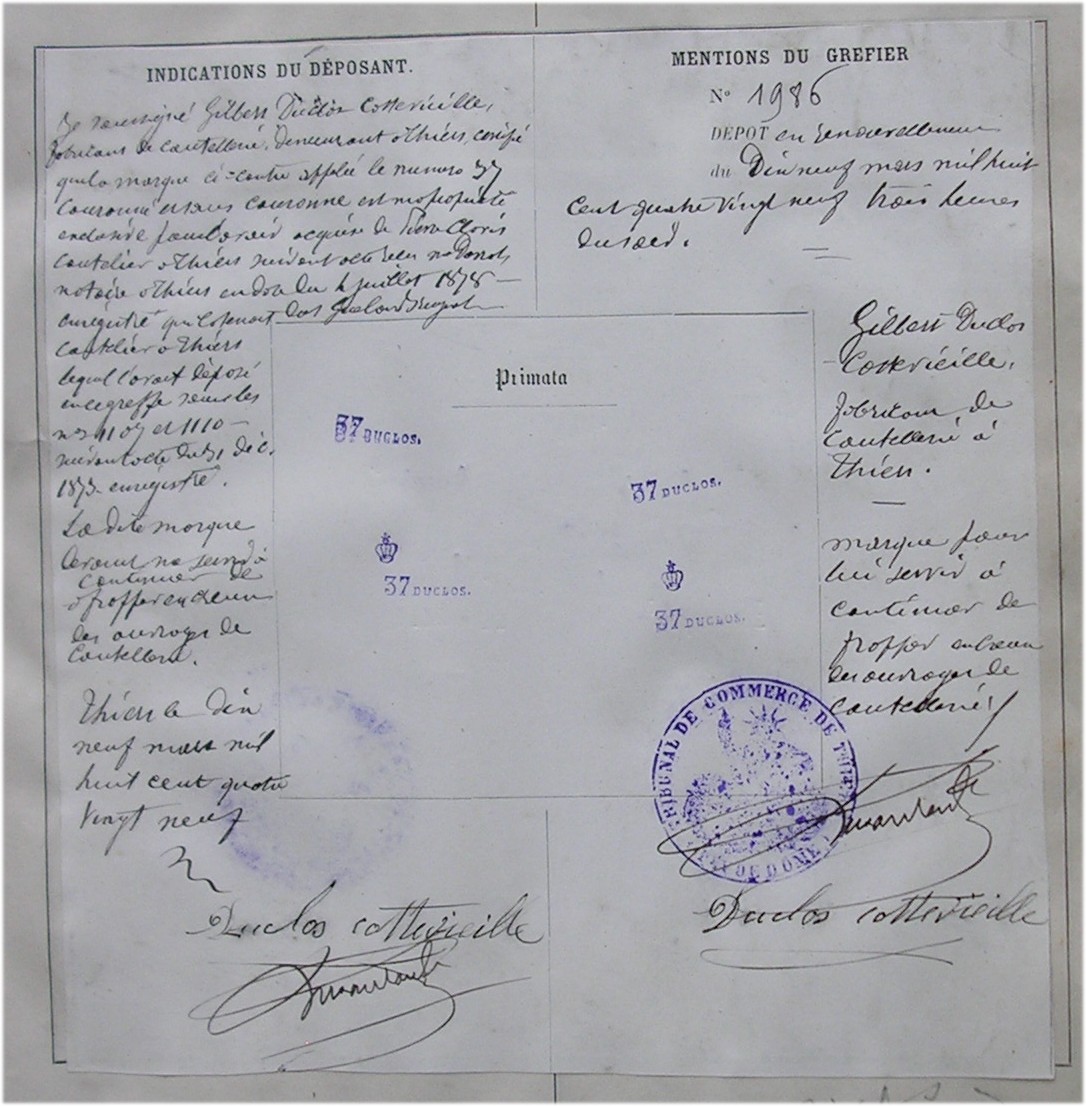 INDICATIONS DU DÉPOSANT.
Je soussigné Gilbert Duclos Cottevieille,
fabricant de coutellerie, demeurant à Thiers, certifie
que la marque ci-contre appelée le numero 37
couronné et sans couronne est ma propriété
acquise de Pierre
coutelier à Thiers suivant acte reçu Me
notaire à Thiers en date du 4 juillet 1878 —
enregistré qui la tenait
coutelier à Thiers
lequel l'avait déposé
au greffe sous les
nos 1109 et 1110 —
suivant acte du 31 déc.
1873 enregistré.
La dite marque
devant me servir à
continuer de
frapper en creux
des ouvrages de
coutellerie.
Thiers le dix
neuf mars mil
huit cent quatre
vingt neuf
Duclos cottevieille
MENTIONS DU GREFIER
No 1986
DÉPOT en renouvellement
du Dix neuf mars mil huit
cent quatre vingt neuf trois heures
du soir.
Primata
37 DUCLOS.
37 DUCLOS.
37 DUCLOS.
37 DUCLOS.
Gilbert Duclos
Cottevieille,
fabricant de
coutellerie à
Thiers.
marque pour
lui servir à
continuer de
frapper en creux
des ouvrages de
coutellerie
TRIBUNAL DE COMMERCE DE THIERS
PUY DE DOME
Duclos cottevieille